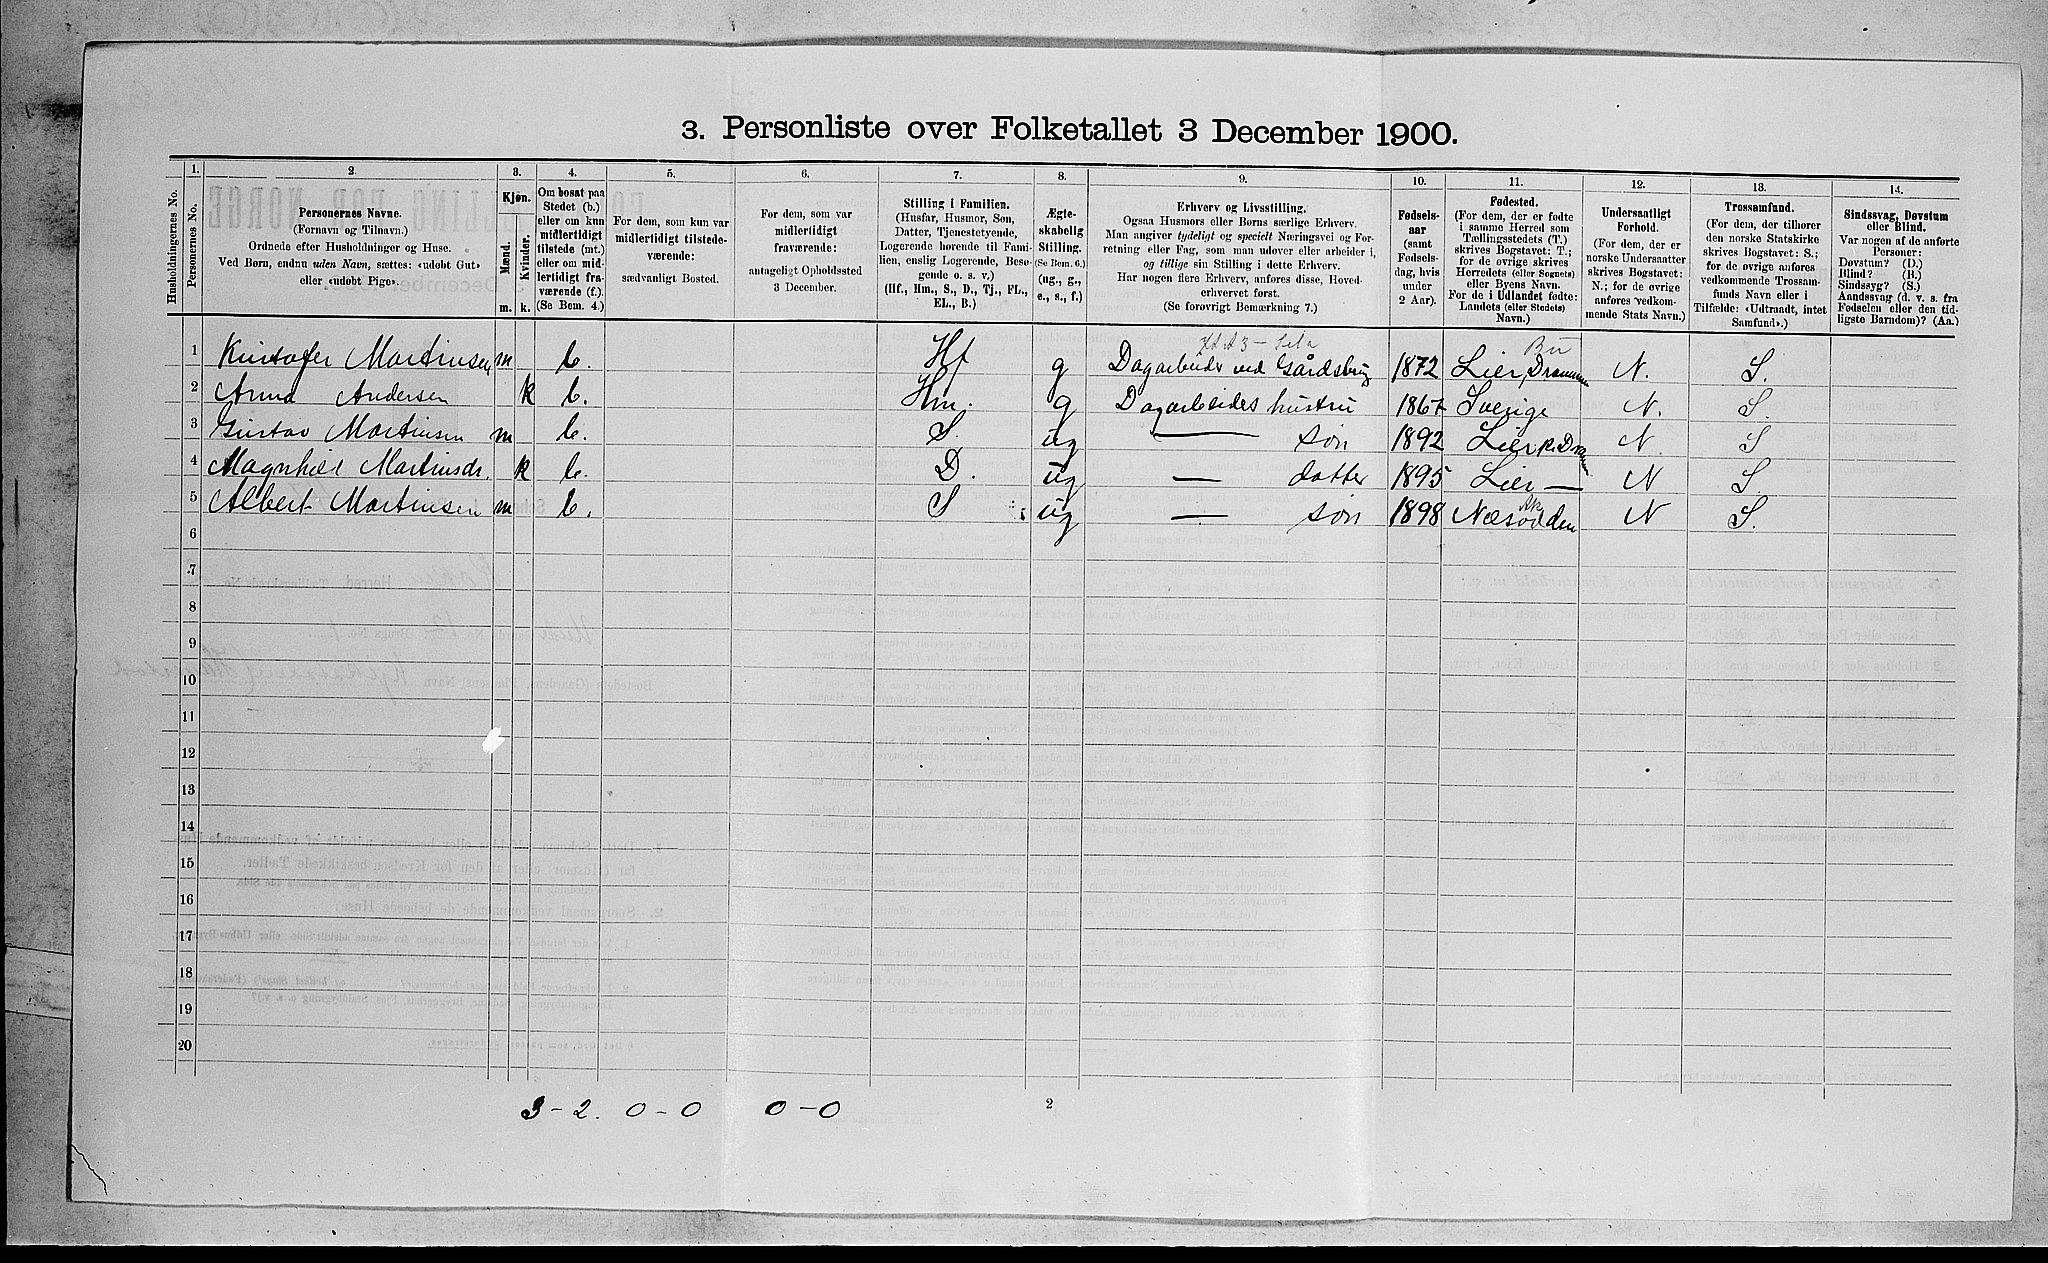 3. Personliste over Folketallet 3 December 1900.
1. 2. 3. 4. 5. 6. 7. 8. 9. 10. 11. 12. 13. 14.
Husholdningernes No.
Personernes No.
Personernes Navne.
(Fornavn og Tilnavn.)
Ordnede efter Husholdninger og Huse.
Ved Børn, endnu uden Navn, sættes: «udøbt Gut»
eller «udøbt Pige».
Kjøn.
Mænd.
Kvinder.
m. k.
Om bosat paa
Stedet (b.)
eller om kun
midlertidigt
tilstede (mt.)
eller om mid-
lertidigt fra-
værende (f.)
(Se Bem. 4.)
For dem, som kun var
midlertidigt tilstede-
værende:
sædvanligt Bosted.
For dem, som var
midlertidigt
fraværende:
antageligt Opholdssted
3 December.
Stilling i Familien.
(Husfar, Husmor, Søn,
Datter, Tjenestetyende,
Logerende hørende til Fami-
lien, enslig Logerende, Besø-
gende o. s. v.)
(Hf., Hm., S., D., Tj., FL.,
EL., B.)
Ægte-
skabelig
Stilling.
(Se Bem. 6.)
(ug., g.,
e., s., f.)
Erhverv og Livsstilling.
Ogsaa Husmors eller Børns særlige Erhverv.
Man angiver tydeligt og specielt Næringsvei og For-
retning eller Fag, som man udøver eller arbeider i,
og tillige sin Stilling i dette Erhverv.
Har nogen flere Erhverv, anføres disse, Hoved-
erhvervet først.
(Se forøvrigt Bemærkning 7.)
Fødsels-
aar
(samt
Fødsels-
dag, hvis
under
2 Aar).
Fødested.
(For dem, der er fødte
i samme Herred som
Tællingsstedets (T.)
skrives Bogstavet: T.;
for de øvrige skrives
Herredets (eller Sognets)
eller Byens Navn.
For de i Udlandet fødte:
Landets (eller Stedets)
Navn.)
Undersaatligt
Forhold.
(For dem, der er
norske Undersaatter
skrives Bogstavet:
N.; for de øvrige
anføres vedkom-
mende Stats Navn.)
Trossamfund.
(For dem, der tilhører
den norske Statskirke
skrives Bogstavet: S.;
for de øvrige anføres
vedkommende Trossam-
funds Navn eller i
Tilfælde: «Udtraadt, intet
Samfund».)
Sindssvag, Døvstum
eller Blind.
Var nogen af de anførte
Personer:
Døvstum? (D.)
Blind? (B.)
Sindssyg? (S.)
Aandssvag (d. v. s. fra
Fødselen eller den tid-
ligste Barndom)? (Aa.)
1 Kristofer Martinsen m b. Hf g Dagarbeider ved Gårdsbrug 1872 Lier, Drammen Bu N. S.
2 Anna Andersen k b. Hm. g Dagarbeides hustru 1867 Sverige N. S.
3 Gustav Martinsen m b. S. ug — søn 1892 Lier N. S
4 Martinsdr. k b. D. ug — datter 1895 Lier — N S.
5 Albert Martinsen m b. S ug — søn 1898 Næsodden Ak N S.
6
7
8
9
10
11
12
13
14
15
16
17
18
19
20
3 - 2. 0 - 0 0 - 0
2